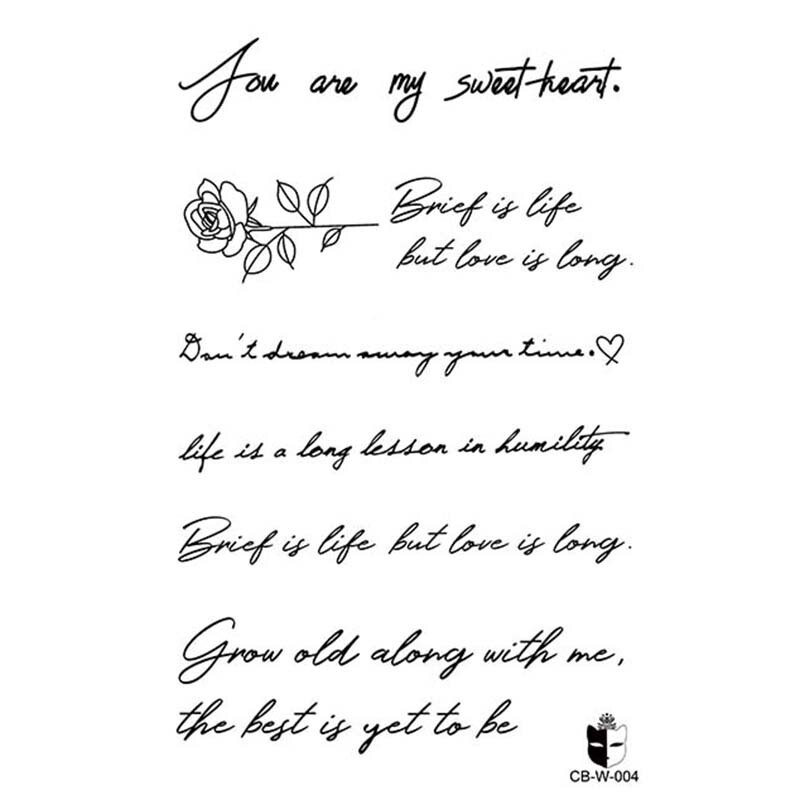 You are my sweetheart.
Brief is life
but love is long.
Don't dream away your time.
life is a long lesson in humility
Brief is life but love is long.
Grow old along with me,
the best is yet to be
CB-W-004